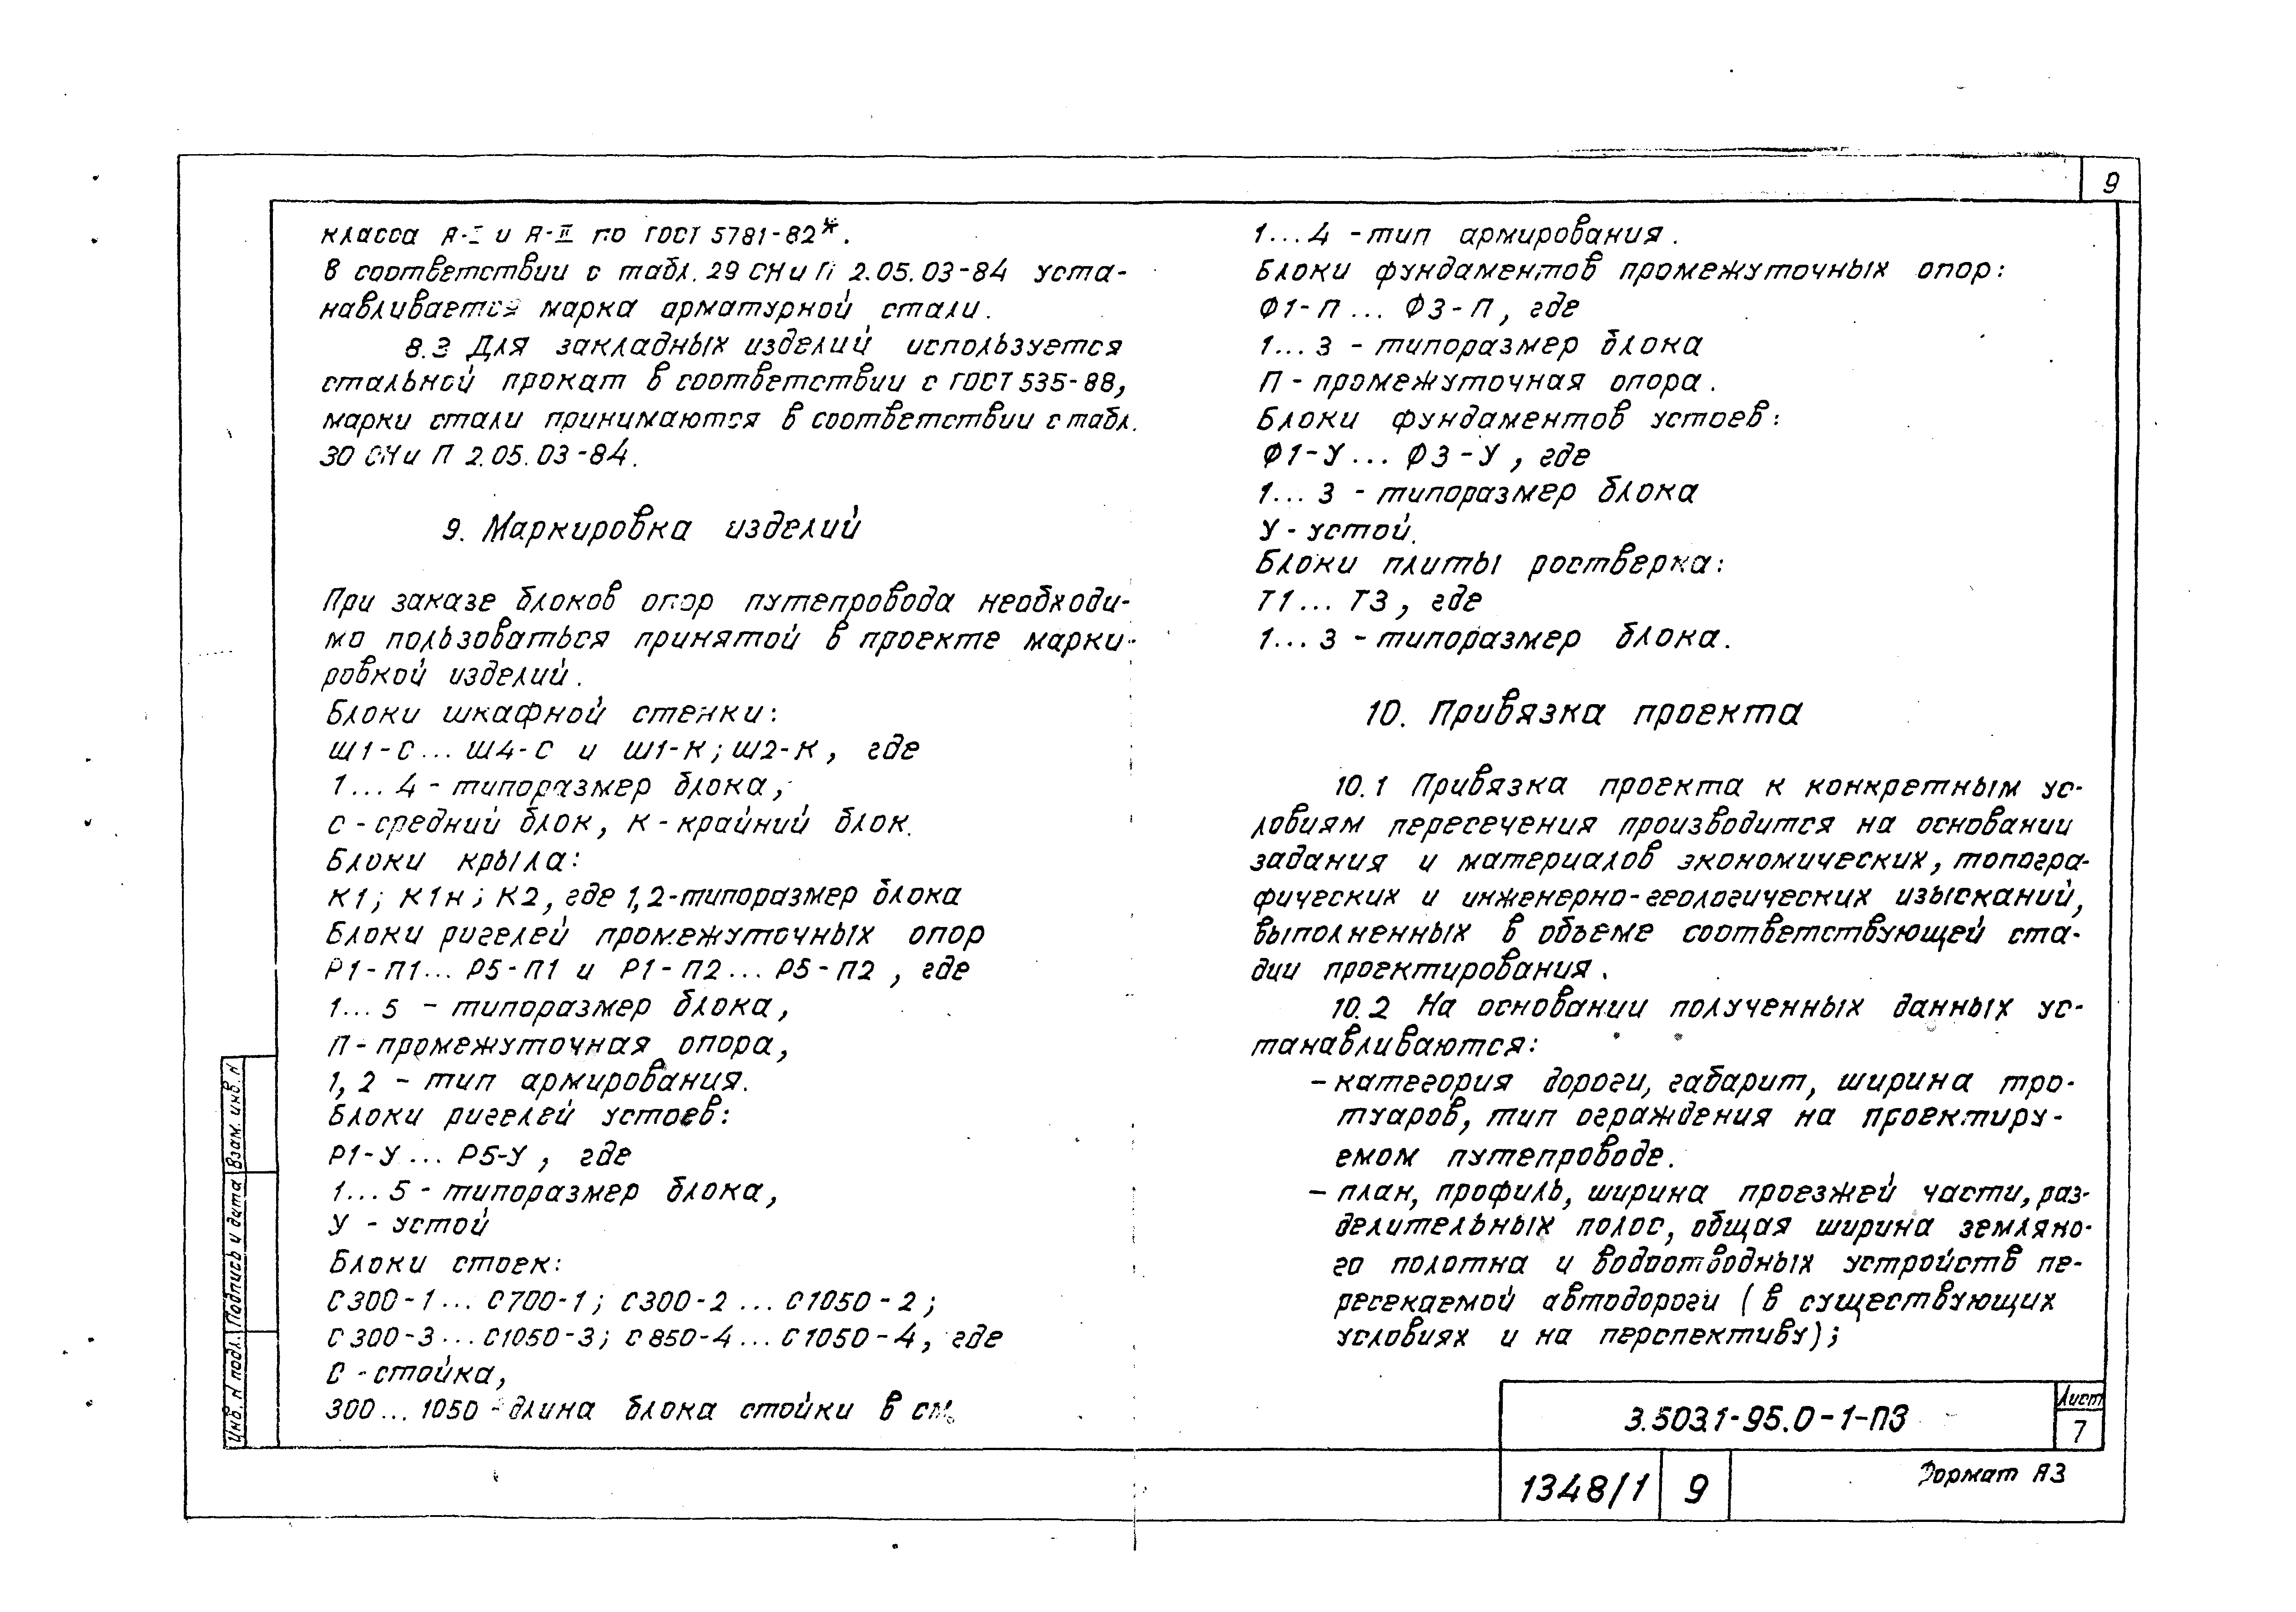 9
класса А-I и А-II по ГОСТ 5781-82*.
В соответствии с табл. 29 СНиП 2.05.03-84 уста-
навливается марка арматурной стали.
8.3 Для закладных изделий используется
стальной прокат в соответствии с ГОСТ 535-88,
марки стали принимаются в соответствии с табл.
30 СНиП 2.05.03-84.
9. Маркировка изделий
При заказе блоков опор путепровода необходи-
мо пользоваться принятой в проекте марки-
ровкой изделий.
Блоки шкафной стенки:
Ш1-С... Ш4-С и Ш1-К; Ш2-К, где
1...4 - типоразмер блока,
С - средний блок, К - крайний блок.
Блоки крыла:
К1; К1н; К2, где 1,2-типоразмер блока
Блоки ригелей промежуточных опор
Р1-П1... Р5-П1 и Р1-П2... Р5-П2, где
1...5 - типоразмер блока,
П - промежуточная опора,
1, 2 - тип армирования.
Блоки ригелей устоев:
Р1-У... Р5-У, где
1...5 - типоразмер блока,
У - устой
Блоки стоек:
С300-1... С700-1; С300-2... С1050-2;
С300-3...С1050-3; С850-4...С1050-4, где
С - стойка,
300...1050 - длина блока стойки в см.
1...4 - тип армирования.
Блоки фундаментов промежуточных опор:
Ф1-П... Ф3-П, где
1...3 - типоразмер блока
П - промежуточная опора.
Блоки фундаментов устоев:
Ф1-У... Ф3-У, где
1...3 - типоразмер блока
У - устой.
Блоки плиты ростверка:
Т1... Т3, где
1...3 - типоразмер блока.
10. Привязка проекта
10.1 Привязка проекта к конкретным ус-
ловиям пересечения производится на основании
задания и материалов экономических, топогра-
фических и инженерно-геологических изысканий,
выполненных в объеме соответствующей ста-
дии проектирования.
10.2 На основании полученных данных ус-
танавливаются:
- категория дороги, габарит, ширина тро-
туаров, тип ограждения на проектиру-
емом путепроводе.
- план, профиль, ширина проезжей части, раз-
делительных полос, общая ширина земляно-
го полотна и водоотводных устройств пе-
ресекаемой автодороги (в существующих
условиях и на перспективу);
Инв. N подл. Подпись и дата Взам. инв. N
3.503.1-95.0-1-ПЗ
Лист
7
1348/1 9
Формат А3